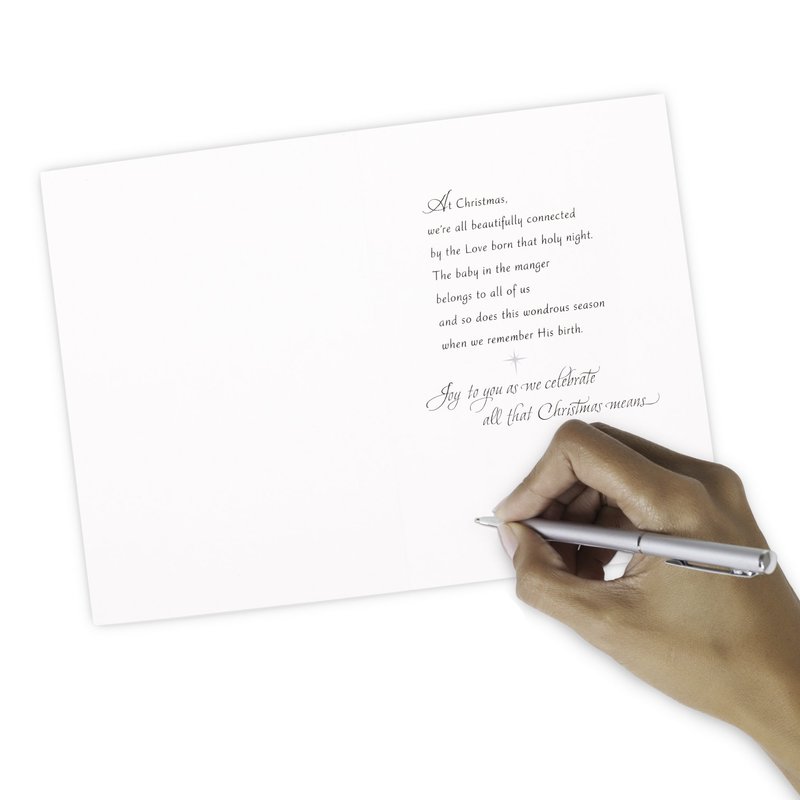 At Christmas,
we're all beautifully connected
by the Love born that holy night.
The baby in the manger
belongs to all of us
and so does this wondrous season
when we remember His birth.
Joy to you as we celebrate
all that Christmas means